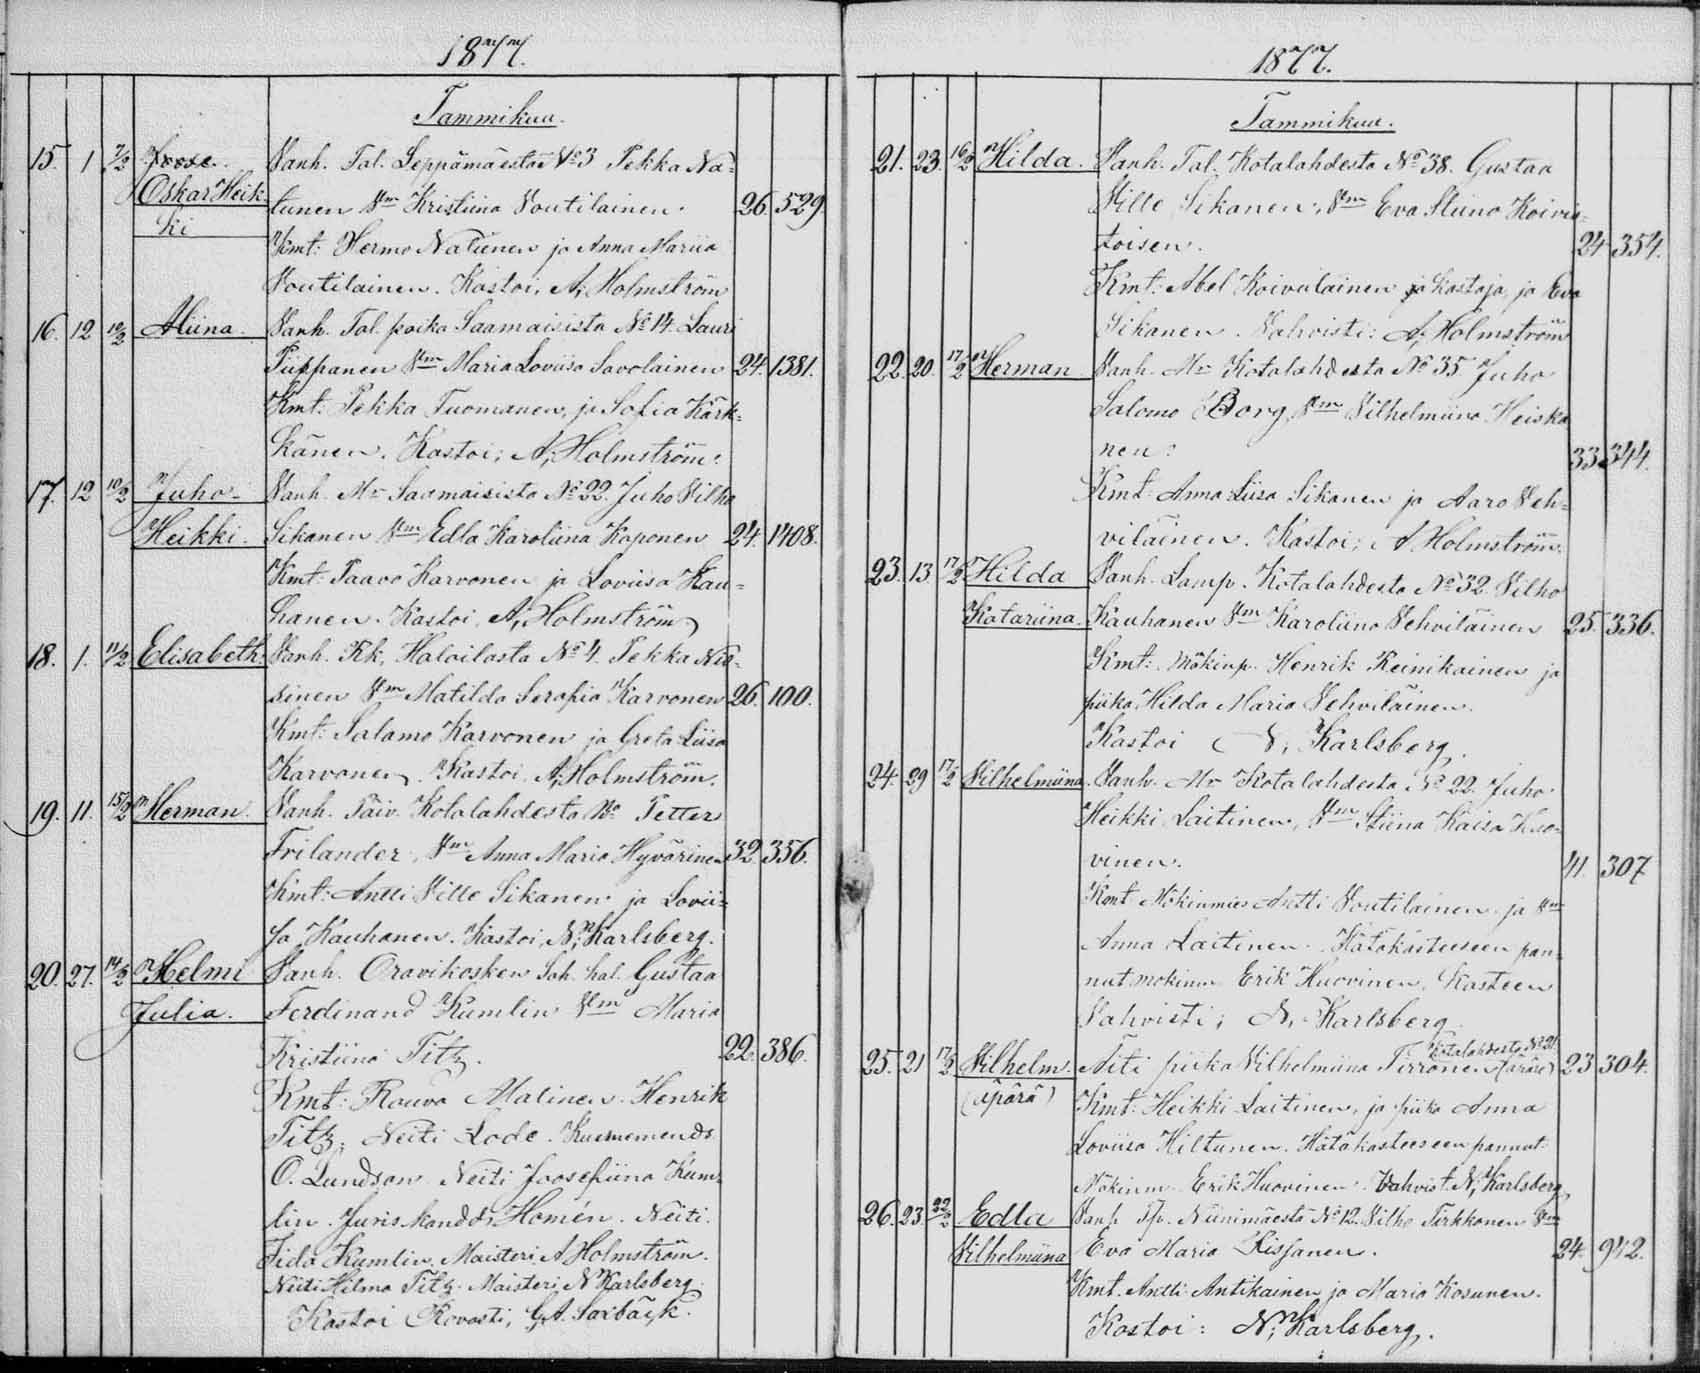 1877.
Tammikuu.
15. 1 7/2 Joose. Vanh. Tal. Leppämäestä No 3 Pekka Na-
Oskar Heik- tunen Vm Kristiina Voutilainen. 26. 529
ki
Kmt: Hermo Natunen ja Anna Mariia
Voutilainen. Kastoi, A, Holmström
16. 12 10/2 Aliina. Vanh. Tal. poika Saamaisista No 14. Lauri
Piippanen Vm Maria Loviisa Savolainen 24. 1381.
Kmt: Pekka Tuomanen, ja Sofia Kärk-
känen. Kastoi; A, Holmström.
17. 12 10/2 Juho- Vanh. Mr Saamaisista No 22. Juho Vilho
Heikki. Sikanen Vm Edla Karoliina Kaponen 24. 1408.
Kmt: Paavo Karvonen ja Loviisa Kau-
hanen. Kastoi, A, Holmström
18. 1. 11/2 Elisabeth. Vanh. Kk. Haloilasta No 4. Pekka Nii-
sinen Vm Matilda Serafia Karvonen 26. 100.
Kmt: Salamo Karvonen ja Greta Liisa
Karvonen. Kastoi A, Holmström.
19. 11. 15/2 Herman. Vanh. Päiv. Kotalahdesta No Petter
Frilander, Vm Anna Maria Hyvärinen 32. 356.
Kmt: Antti Ville Sikanen ja Lovii-
sa Kauhanen. Kastoi, N, Karlsberg.
20. 27. 14/2 Helmi Vanh. Oravikosken Sah. hal. Gustaa
Julia. Ferdinand Kumlin Vm Maria
Kristiina Titz. 22. 386.
Kmt: Rouva Malinen. Henrik
Titz. Neiti Lode.
O. Lundson Neiti Joosefiina Kum-
lin. Juris kandd. Homén. Neiti.
Fida Kumlin. Maisteri A Holmström.
Neiti Hilma Titz. Maisteri N Karlsberg.
Kastoi Rovasti, G. A. Saxbäck.
1877.
Tammikuu.
21. 23. 16/2 Hilda. Vanh. Tal. Kotalahdesta No 38. Gustaa
Ville Sikanen, Vm Eva Stiina Koivis-
toisen. 24 354.
Kmt: Abel Koivulainen ja kastaja, ja Eva
Sikanen. Vahvisti: A, Holmström
22. 20. 17/2 Herman Vanh. Mr Kotalahdesta No 35 Juho
Salomo Borg, Vm Vilhelmiina Heiska
nen. 33 344.
Kmt: Anna Liisa Sikanen ja Aaro Veh-
viläinen. Kastoi; A Holmström.
23. 13. 17/2 Hilda Vanh. Lamp. Kotalahdesta No 32. Vilho
Katariina. Kauhanen Vm Karoliina Vehviläinen 25. 336.
Kmt: Mökinp. Henrik Reinikainen ja
piika Hilda Maria Vehviläinen.
Kastoi N, Karlsberg.
24. 29 17/2 Vilhelmiina. Vanh. Mr Kotalahdesta No 22. Juho
Heikki Laitinen, Vm Stiina Kaisa Huo-
vinen. 41. 307
Kmt Mökinmies Antti Voutilainen ja Vm
Anna Laitinen. Hätäkasteeseen pan-
nut mökinm Erik Huovinen, Kasteen
Vahvisti; N, Karlsberg
Kotalahdesta No 21
25. 21 17/2 Vilhelm. Äiti piika Vilhelmiina Tirronen 23 304.
(äpärä) Kmt: Heikki Laitinen, ja piika Anna
Loviisa Hiltunen. Hätäkasteeseen pannut
Mökinm. Erik Huovinen. Vahvist. N, Karlsberg
26. 23. 22/2 Edla Vanh Tp. Niinimäestä No 12. Vilho Tirkkonen Vm
Vilhelmiina Eva Maria Rissanen. 24. 942.
Kmt. Antti Antikainen ja Maria Kosunen.
Kastoi: N, Karlsberg.